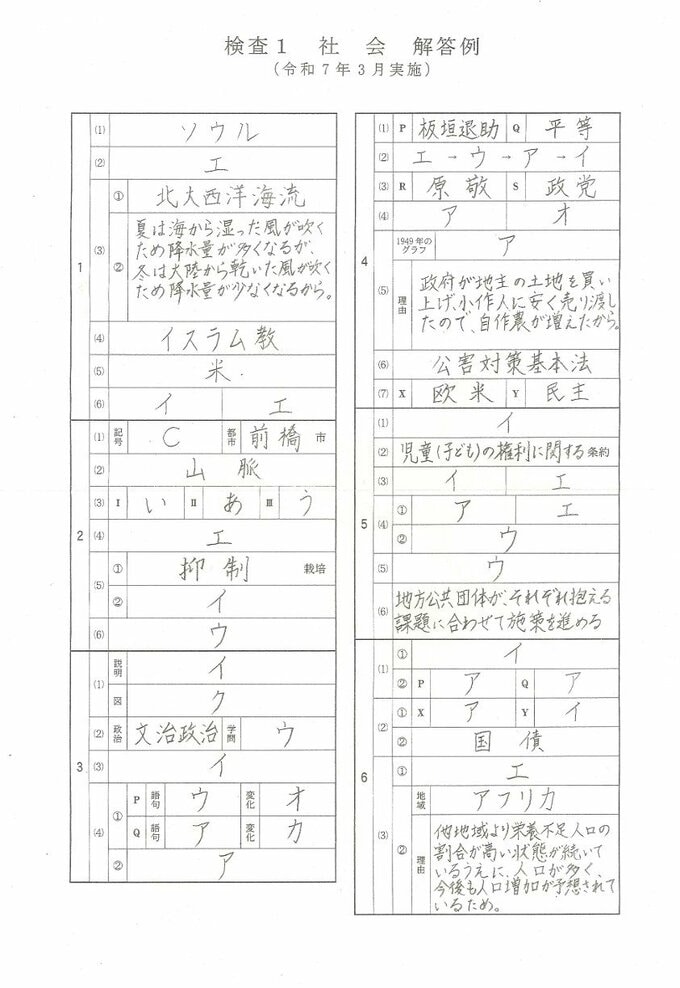 検査1 社会 解答例
(令和7年3月実施)
1
(1) ソウル
(2) エ
(3) ① 北大西洋海流
② 夏は海から湿った風が吹く
ため降水量が多くなるが、
冬は大陸から乾いた風が吹く
ため降水量が少なくなるから。
(4) イスラム教
(5) 米
(6) イ エ
2
(1) 記号 C 都市 前橋 市
(2) 山脈
(3) Ⅰ い Ⅱ あ Ⅲ う
(4) エ
(5) ① 抑制 栽培
② イ
(6) ウ
3
(1) 説明 イ
図 ク
(2) 政治 文治政治 学問 ウ
(3) イ
(4) ① P 語句 ウ 変化 オ
Q 語句 ア 変化 カ
② ア
4
(1) P 板垣退助 Q 平等
(2) エ→ウ→ア→イ
(3) R 原敬 S 政党
(4) ア オ
(5) 1949年のグラフ ア
理由 政府が地主の土地を買い
上げ、小作人に安く売り渡し
たので、自作農が増えたから。
(6) 公害対策基本法
(7) X 欧米 Y 民主
5
(1) イ
(2) 児童(子ども)の権利に関する 条約
(3) イ エ
(4) ① ア エ
② ウ
(5) ウ
(6) 地方公共団体が、それぞれ抱える
課題に合わせて施策を進める
6
(1) ① イ
② P ア Q ア
(2) ① X ア Y イ
② 国債
(3) ① エ
② 地域 アフリカ
理由 他地域より栄養不足人口の
割合が高い状態が続いて
いるうえに、人口が多く、
今後も人口増加が予想されて
いるため。